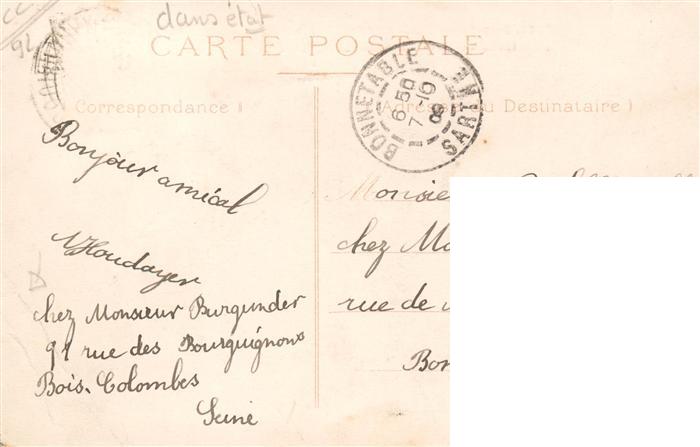 dans état
92
CARTE POSTALE
Correspondance )
Adresse du Destinataire )
BONNETABLE
6 50
7 - 9
08
SARTHE
Bonjour amical
Houdayer
chez Monsieur Burgunder
91 rue des Bourguignons
Bois-Colombes
Seine
chez
rue de